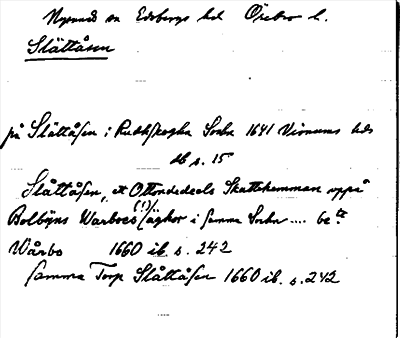 Nysunds sn Edsbergs hd Örebro l.
Slåttåsen
på Slåttåsen i Rudhskogha Sochn 1641 Visnums hds
db s. 15
Slåttåsen, et Ottondedeels Skattehemman uppå
Bolbÿns Warboes (!) äghor i samma Sochn .... be
Wårbo 1660 ib. s. 242
samma Torp Slåttåsen 1660 ib. s. 242